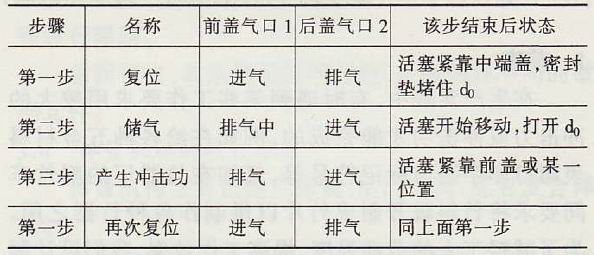 步骤 名称 前盖气口 1 后盖气口 2 该步结束后状态
第一步 复位 进气 排气 活塞紧靠中端盖,密封垫堵住 d₀
第二步 储气 排气中 进气 活塞开始移动,打开 d₀
第三步 产生冲击功 排气 进气 活塞紧靠前盖或某一位置
第一步 再次复位 进气 排气 同上面第一步